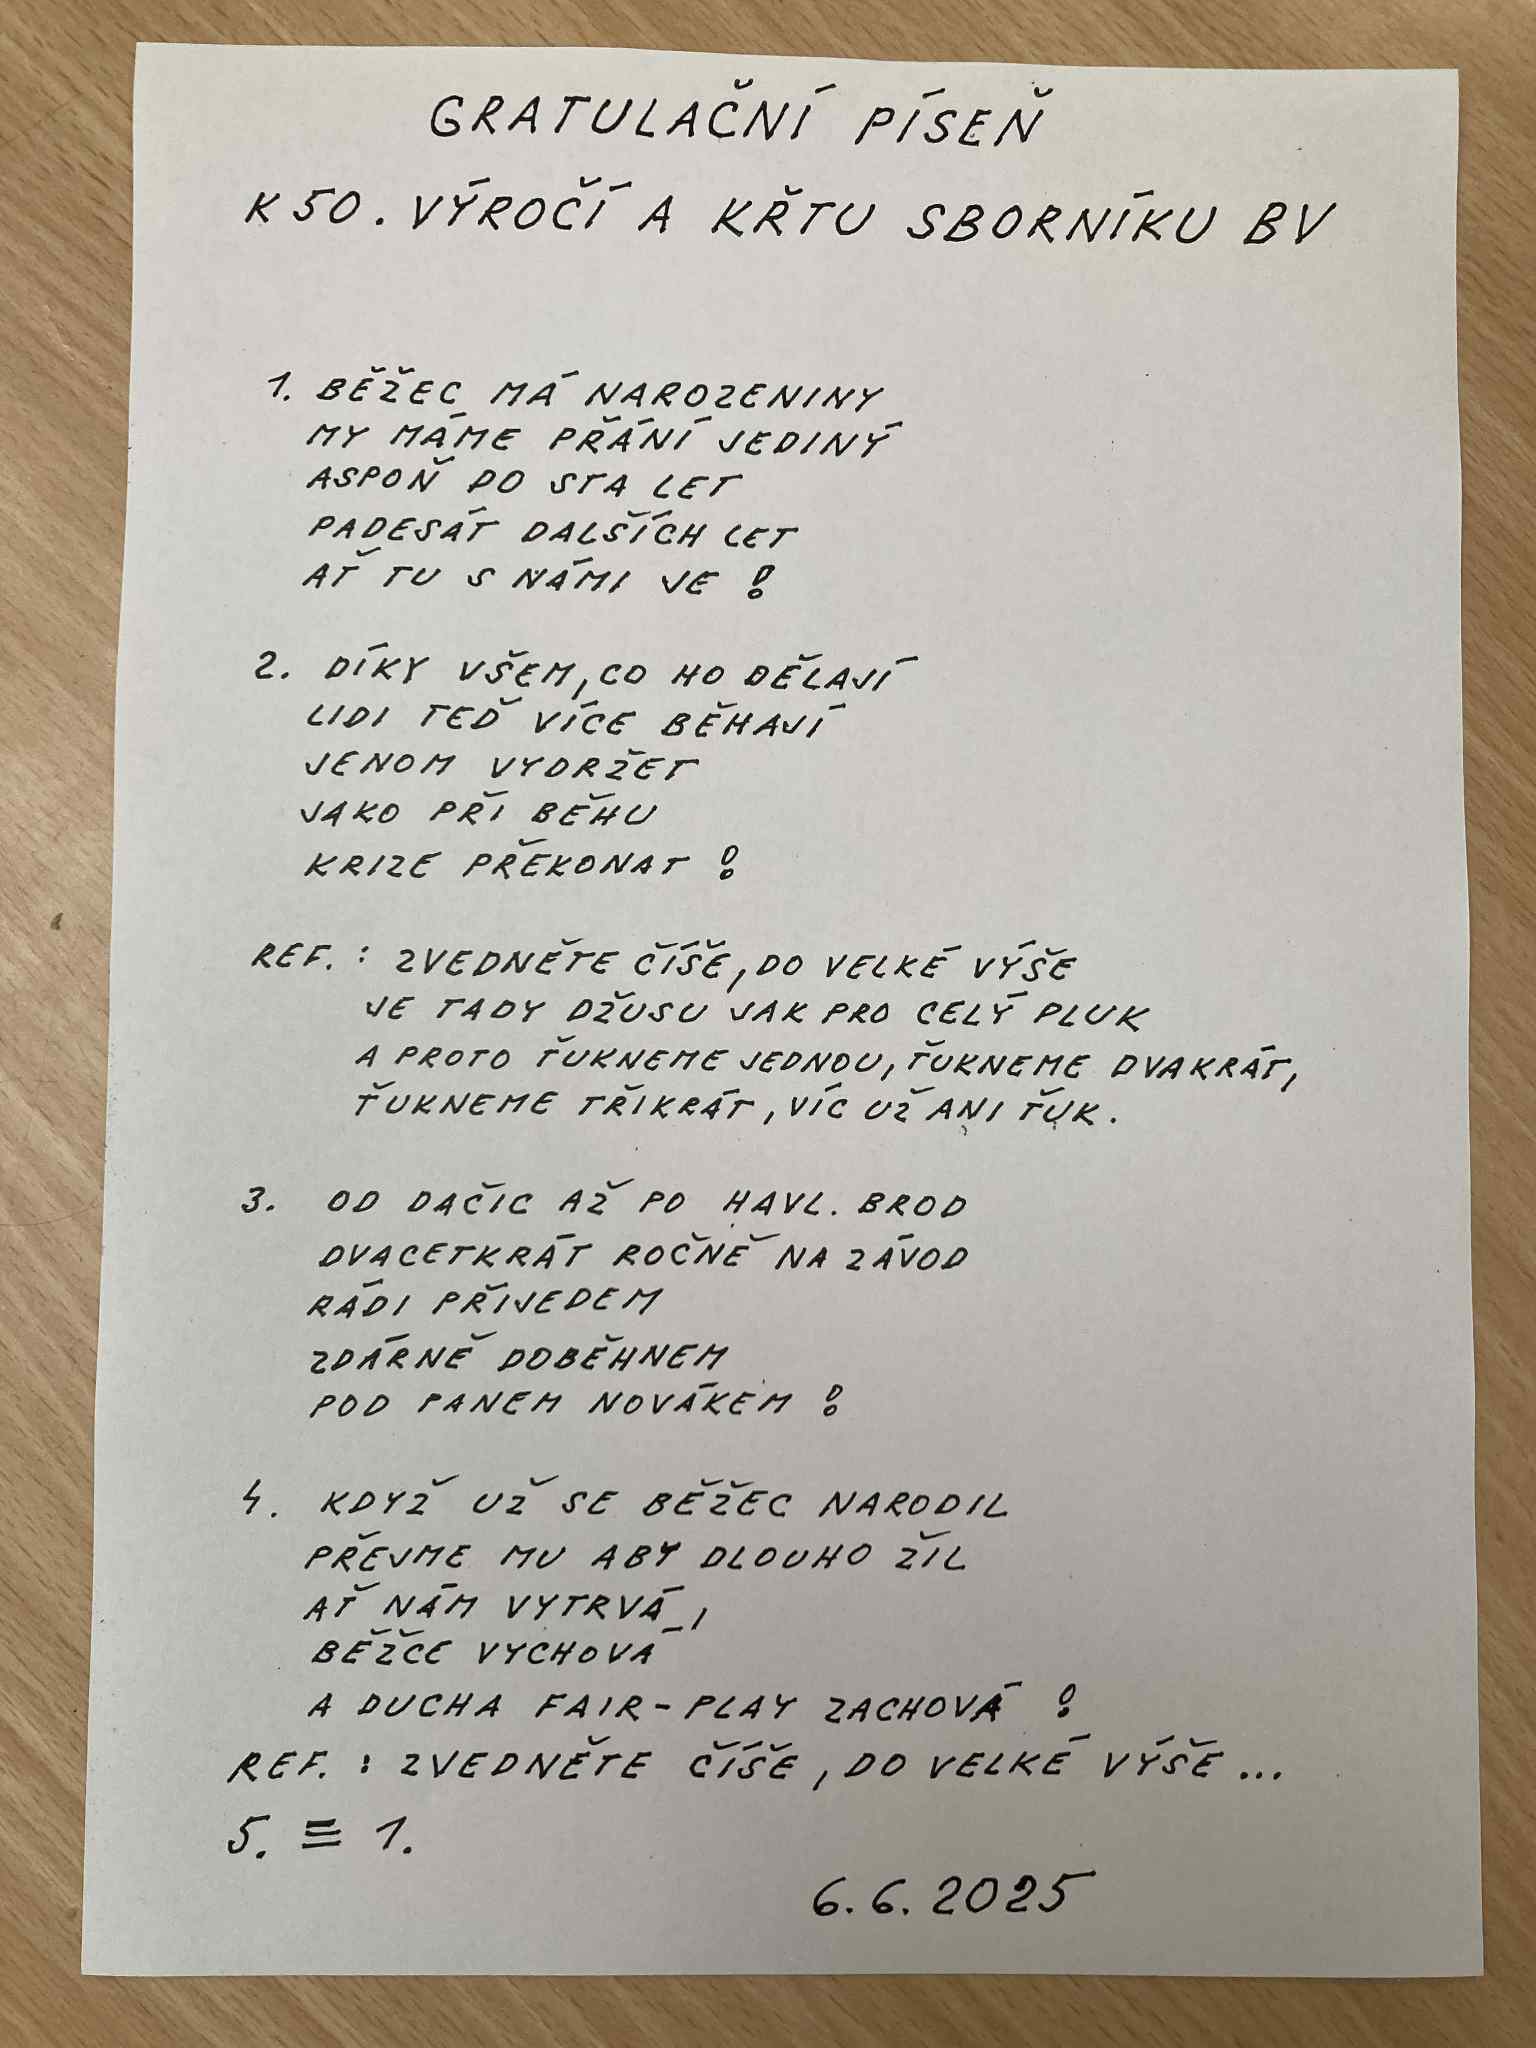 GRATULAČNÍ PÍSEŇ
K 50. VÝROČÍ A KŘTU SBORNÍKU BV
1. BĚŽEC MÁ NAROZENINY
MY MÁME PŘÁNÍ JEDINÝ
ASPOŇ DO STA LET
PADESÁT DALŠÍCH LET
AŤ TU S NÁMI JE !
2. DÍKY VŠEM, CO HO DĚLAJÍ
LIDI TEĎ VÍCE BĚHAJÍ
JENOM VYDRŽET
JAKO PŘI BĚHU
KRIZE PŘEKONAT !
REF. : ZVEDNĚTE ČÍŠE, DO VELKÉ VÝŠE
JE TADY DŽUSU JAK PRO CELÝ PLUK
A PROTO ŤUKNEME JEDNOU, ŤUKNEME DVAKRÁT,
ŤUKNEME TŘIKRÁT, VÍC UŽ ANI ŤUK.
3. OD DAČIC AŽ PO HAVL. BROD
DVACETKRÁT ROČNĚ NA ZÁVOD
RÁDI PŘIJEDEM
ZDÁRNĚ DOBĚHNEM
POD PANEM NOVÁKEM !
4. KDYŽ UŽ SE BĚŽEC NARODIL
PŘEJME MU ABY DLOUHO ŽIL
AŤ NÁM VYTRVÁ,
BĚŽCE VYCHOVÁ
A DUCHA FAIR-PLAY ZACHOVÁ !
REF. : ZVEDNĚTE ČÍŠE, DO VELKÉ VÝŠE...
5. ≡ 1.
6.6.2025